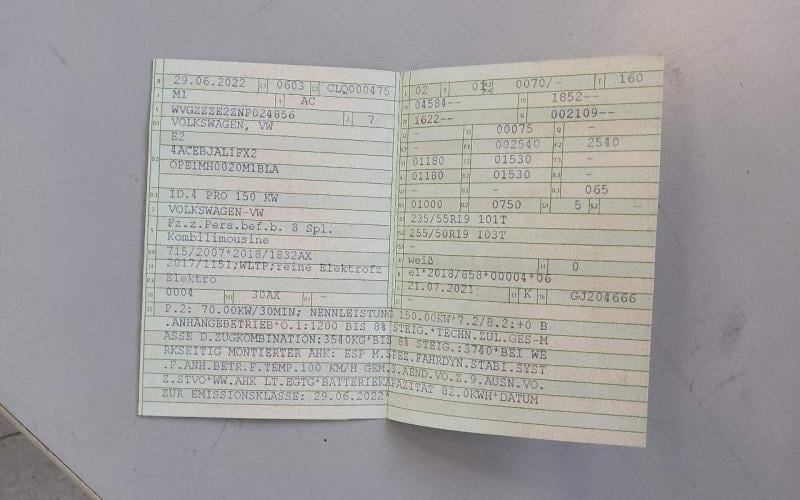 29.06.2022 0603 CLQ000475
M1 AC
WVGZZZE2ZNP024856 7
VOLKSWAGEN, VW
E2
4ACEBJAL1FX2
OPE1MH0020M1BLA
ID.4 PRO 150 KW
VOLKSWAGEN-VW
Fz.z.Pers.bef.b. 8 Spl.
Kombilimousine
715/2007*2018/1832AX
2017/1151;WLTP;reine Elektrofz
Elektro
0004 30AX -
02 01 0070/- 160
04584-- 1852--
1622-- 002109--
- 00075 -
- 002540 2540
01180 01530 -
01180 01530 -
- - 065
01000 0750 5 -
235/55R19 101T
255/50R19 103T
-
weiß 0
e1*2018/858*00004*06
21.07.2021
- K GJ204666
P.2: 70.00KW/30MIN; NENNLEISTUNG 150.00KW*7.2/8.2:+0 B
.ANHÄNGEBETRIEB*O.1:1200 BIS 8% STEIG.*TECHN.ZUL.GES-M
ASSE D.ZUGKOMBINATION:3540KG*BIS 8% STEIG.:3740*BEI WE
RKSEITIG MONTIERTER AHK: ESP M.SPEZ.FAHRDYN.STABI.SYST
.F.ANH.BETR.F.TEMP.100 KM/H GEM.3.AEND.VO.Z.9.AUSN.VO.
Z.STVO*WW.AHK LT.EGTG*BATTERIEKAPAZITÄT 82.0KWH*DATUM
ZUR EMISSIONKLASSE: 29.06.2022*